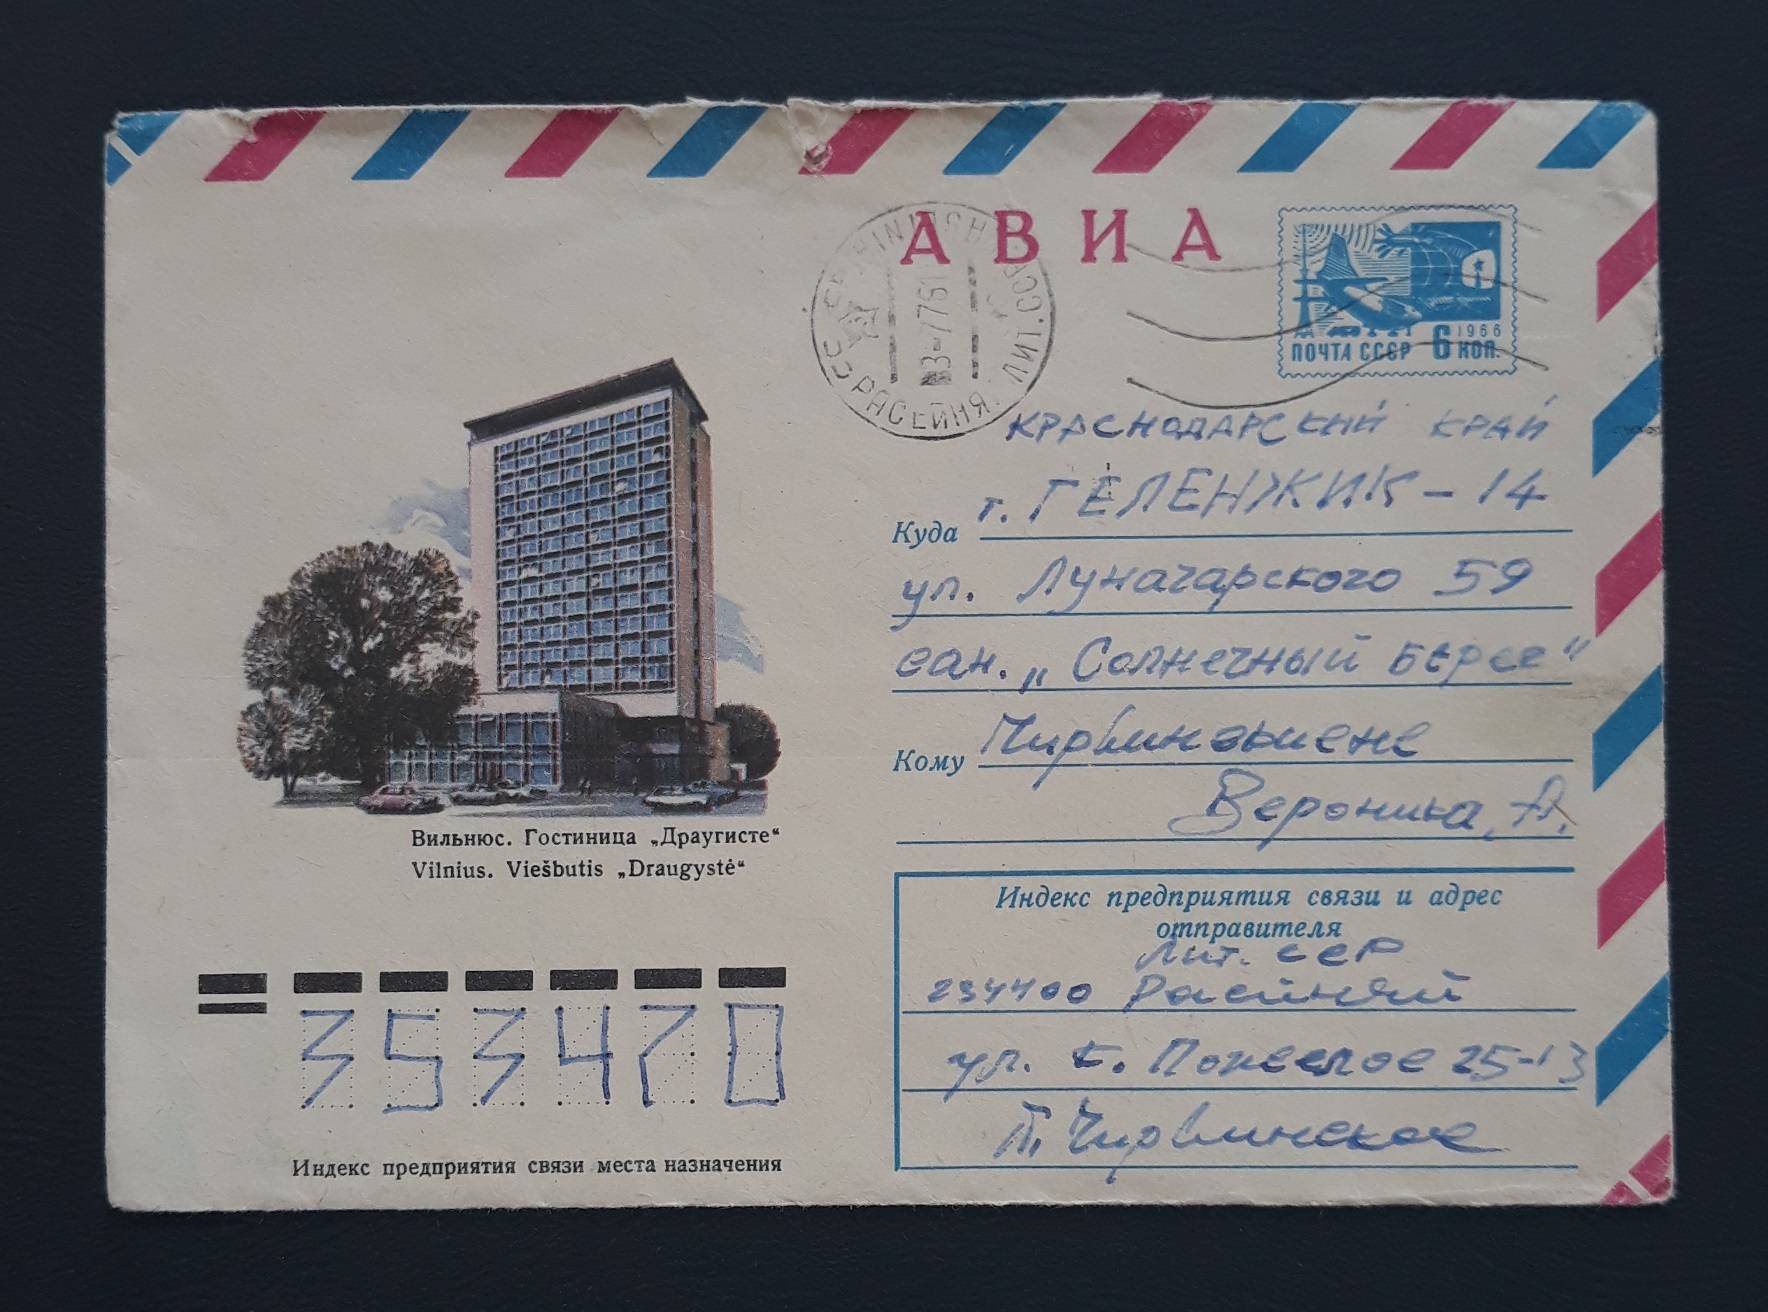 АВИА
РАСЕЙНЯЙ
ПОЧТА СССР 6 КОП.
1966
КРАСНОДАРСКИЙ КРАЙ
Куда г. ГЕЛЕНЖИК - 14
ул. Луначарского 59
сан. „Солнечный берег“
Кому
Вероника, А.
Вильнюс. Гостиница „Драугисте“
Vilnius. Viešbutis „Draugystė“
Индекс предприятия связи и адрес
отправителя
Лит. ССР
234400 Расейняй
ул. 25-13
353470
Индекс предприятия связи места назначения